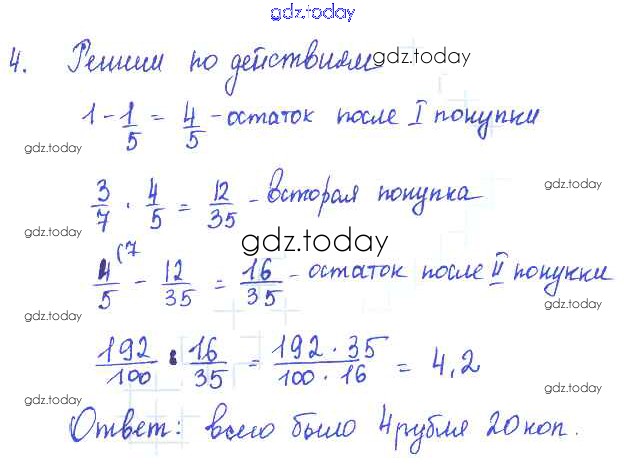 gdz.today
4. Решим по действиям gdz.today
1 - 1/5 = 4/5 - остаток после I покупки
gdz.today
3/7 · 4/5 = 12/35 - вторая покупка
gdz.today
gdz.today
gdz.today
4/5 (7 - 12/35 = 16/35 - остаток после II покупки
gdz.today
gdz.today
192/100 : 16/35 = 192 · 35/100 · 16 = 4,2
gdz.today
gdz.today
Ответ: всего было 4 рубля 20 коп.